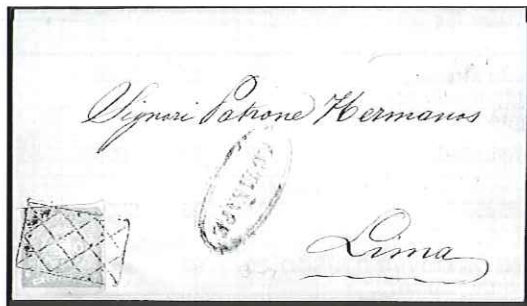 Signori Patrone Hermanos
Lima